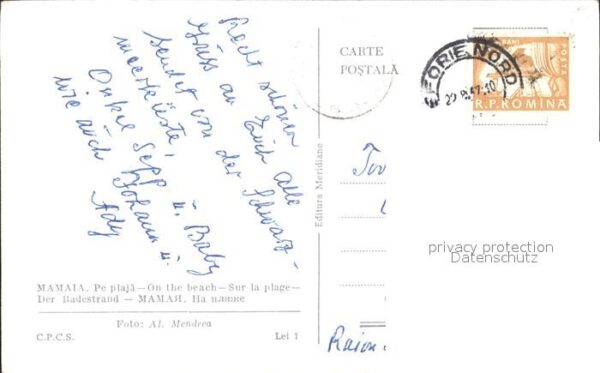 Recht schönen
Gruss an Euch alle
sendet von der Schwarz-
meerküste,
Onkel Sepp u. Baby
wie auch Johann u.
Ady
MAMAIA. Pe plajă—On the beach—Sur la plage—
Der Badestrand — МАМАЯ. На пляже
Foto: Al. Mendrea
C.P.C.S. Lei 1
Editura Meridiane
CARTE
POȘTALĂ
FORIE NORD
BANI
POSTA
R.P.ROMINA
privacy protection
Datenschutz
Raion